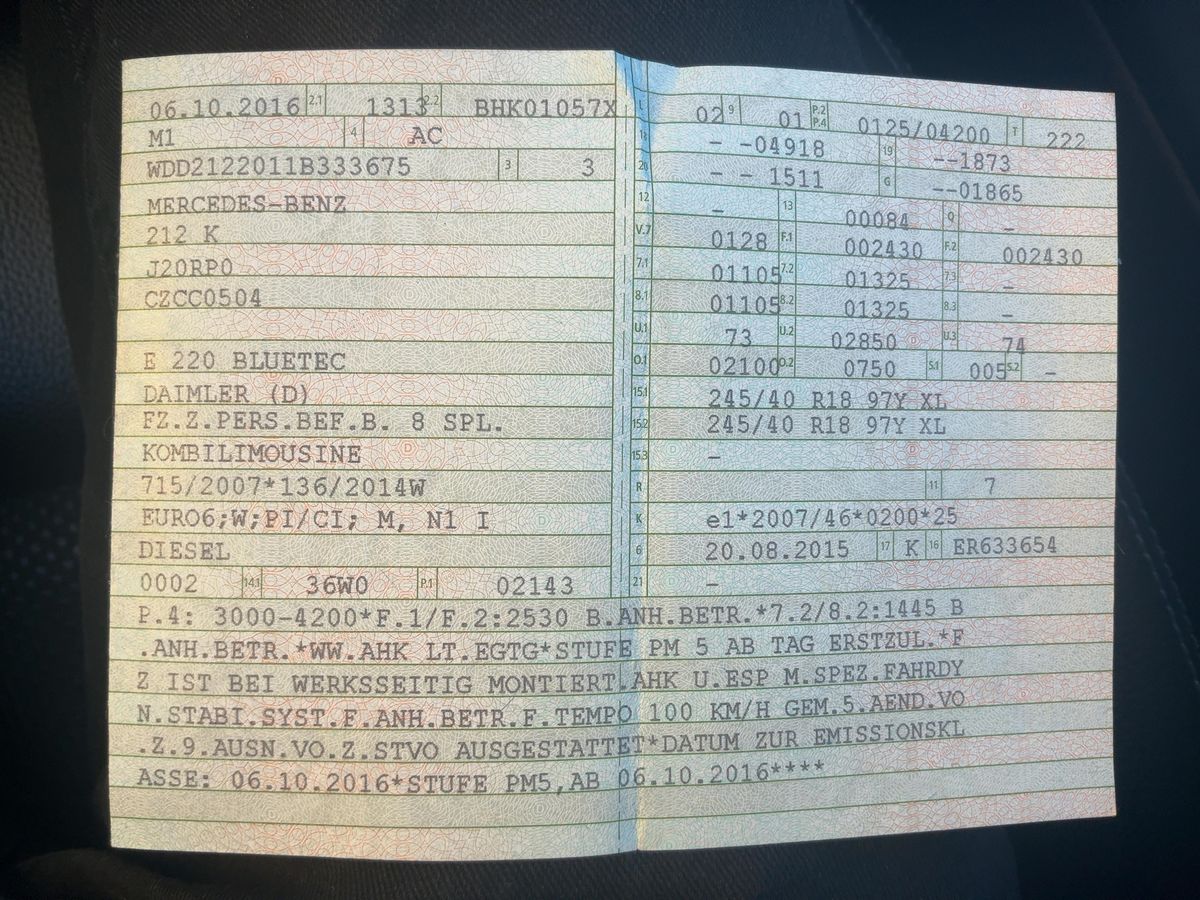 06.10.2016 2.1 1313 2.2 BHK01057X L 02 9 01 P.2 P.4 0125/04200 T 222
M1 4 AC 18 - -04918 19 --1873
WDD2122011B333675 3 3 20 - - 1511 G --01865
MERCEDES-BENZ 12 - 13 00084 Q -
212 K V.7 0128 F.1 002430 F.2 002430
J20RP0 7.1 01105 7.2 01325 7.3 -
CZCC0504 8.1 01105 8.2 01325 8.3 -
U.1 73 U.2 02850 U.3 74
E 220 BLUETEC O.1 02100 O.2 0750 S.1 005 S.2 -
DAIMLER (D) 15.1 245/40 R18 97Y XL
FZ.Z.PERS.BEF.B. 8 SPL. 15.2 245/40 R18 97Y XL
KOMBILIMOUSINE 15.3 -
715/2007*136/2014W R 11 7
EURO6;W;PI/CI; M, N1 I K e1*2007/46*0200*25
DIESEL 6 20.08.2015 17 K 16 ER633654
0002 14.1 36W0 P.1 02143 21 -
P.4: 3000-4200*F.1/F.2:2530 B.ANH.BETR.*7.2/8.2:1445 B
.ANH.BETR.*WW.AHK LT.EGTG*STUFE PM 5 AB TAG ERSTZUL.*F
Z IST BEI WERKSSEITIG MONTIERT.AHK U.ESP M.SPEZ.FAHRDY
N.STABI.SYST.F.ANH.BETR.F.TEMPO 100 KM/H GEM.5.AEND.VO
.Z.9.AUSN.VO.Z.STVO AUSGESTATTET*DATUM ZUR EMISSIONSKL
ASSE: 06.10.2016*STUFE PM5,AB 06.10.2016****